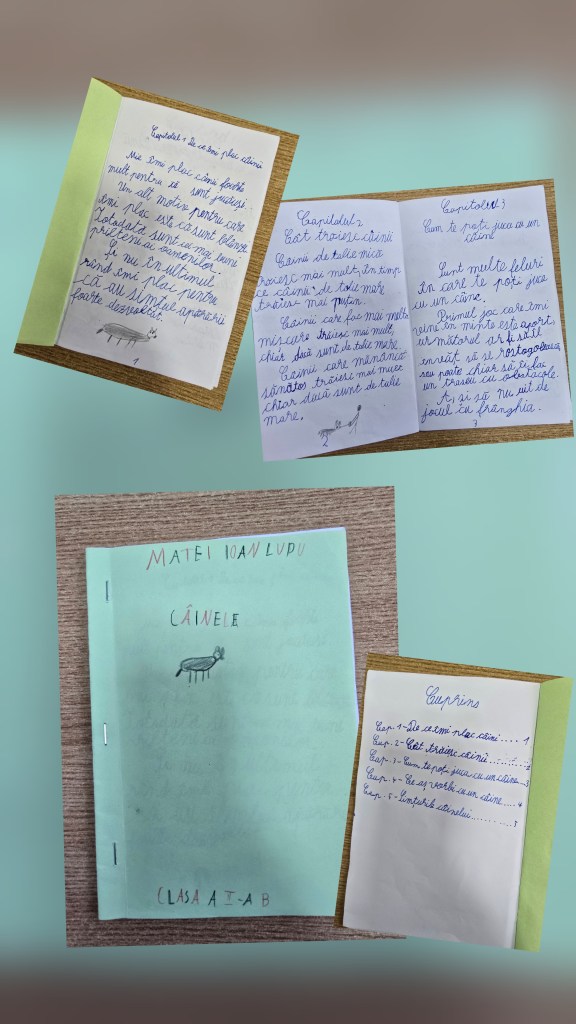 Capitolul 1 De ce îmi plac câinii
Mie îmi plac cânii foarte
mult pentru că sunt jucăuși.
Un alt motiv pentru care
îmi plac este că sunt blânzi.
Totodată sunt cei mai buni
prieteni ai oamenilor.
Și nu în ultimul
rând îmi plac pentru
că au simțul apărării
foarte dezvoltat.
1
Capitolul 2
Cât trăiesc câinii
Câinii de talie mică
trăiesc mai mult, în timp
ce câinii de talie mare
trăiesc mai puțin.
Câinii care fac mai multă
mișcare trăiesc mai mult,
chiar dacă sunt de talie mare.
Câinii care mănâncă
sănătos trăiesc mai mult
chiar dacă sunt de talie
mare.
2
Capitolul 3
Cum te poți juca cu un
câine
Sunt multe feluri
în care te poți juca
cu un câne.
Primul joc care îmi
vine în minte este aport,
următorul ar fi să îl
înveți să se rostogolească
sau poate chiar să îi faci
un traseu cu obstacole.
A, și să nu uit de
jocul cu frânghia.
3
MATEI IOAN LUPU
CÂINELE
CLASA A I-A B
Cuprins
Cap. 1-De ce îmi plac câini .... 1
Cap. 2-Cât trăiesc câinii ........ 2
Cap. 3-Cum te poți juca cu un câine 3
Cap. 4-Ce aș vorbi cu un câine .... 4
Cap. 5-Simțurile câinelui ......... 5